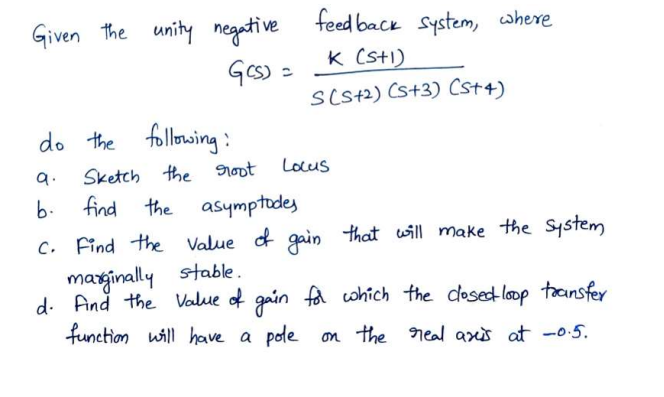 Given the unity negative feedback system, where
G(S) = K (S+1)
S(S+2) (S+3) (S+4)
do the following:
a. Sketch the root Locus
b. find the asymptodes
C. Find the value of gain that will make the system
marginally stable.
d. find the value of gain for which the closed-loop transfer
function will have a pole on the real axis at -0.5.